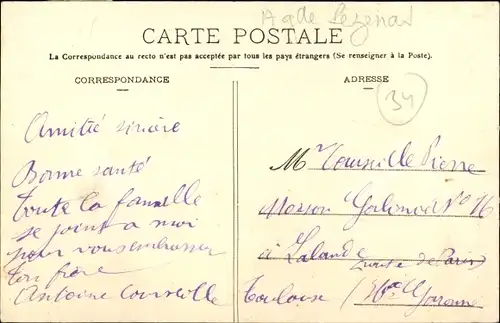 Agde Pezenas
CARTE POSTALE
La Correspondance au recto n'est pas acceptée par tous les pays étrangers (Se renseigner à la Poste).
CORRESPONDANCE
ADRESSE
34
Amitié sincère
Bonne santé
toute la famille
se joint a moi
pour vous embrasser
ton frère
Antoine Courveille
Mr Courveille Pierre
Maison N° 16
à Lalande route de Paris
Toulouse (Hte Garonne